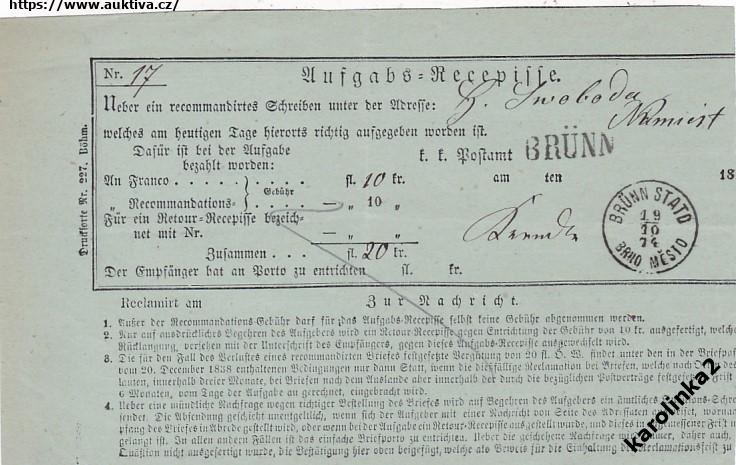 https://www.auktiva.cz/
Nr. 17 Aufgabs-Recepisse.
Ueber ein recommandirtes Schreiben unter der Adresse: H. Swoboda
Namiest
welches am heutigen Tage hierorts richtig aufgegeben worden ist.
Dafür ist bei der Aufgabe
bezahlt worden:
k. k. Postamt BRÜNN
An Franco . . . . . Gebühr . . . . fl. 10 kr. am ten 18
„ Recommandations- . . . . — „ 10 „
Für ein Retour-Recepisse bezeich-
net mit Nr. — „ „
Zusammen . . . fl. 20 kr.
Der Empfänger hat an Porto zu entrichten fl. kr.
BRÜNN STADT
19
10
74
BRNO MĚSTO
Druckforte Nr. 227. Böhm.
Reclamirt am Zur Nachricht.
1. Außer der Recommandations-Gebühr darf für das Aufgabs-Recepisse selbst keine Gebühr abgenommen werden.
2. Nur auf ausdrückliches Begehren des Aufgebers wird ein Retour-Recepisse gegen Entrichtung der Gebühr von 10 kr. ausgefertigt, welche
Rücklangung, versehen mit der Unterschrift des Empfängers, gegen dieses Aufgabs-Recepisse ausgewechselt wird.
3. Die für den Fall des Verlustes eines recommandirten Briefes festgesetzte Vergütung von 20 fl. Ö. W. findet unter den in der Briefpost
vom 20. December 1838 enthaltenen Bedingungen nur dann Statt, wenn die diesfällige Reclamation bei Briefen, welche nach O den
lauten, innerhalb dreier Monate, bei Briefen nach dem Auslande aber innerhalb der durch die bezüglichen Postverträge festgesetzten Frist
6 Monaten, vom Tage der Aufgabe an gerechnet, eingebracht wird.
4. Ueber eine mündliche Nachfrage wegen richtiger Bestellung des Briefes wird auf Begehren des Aufgebers ein ämtliches Schre
sendet. Die Absendung geschieht unentgeltlich, wenn sich der Aufgeber mit einer Nachricht von Seite des Adressaten ausweiset, wornach
pfang des Briefes in Abrede gestellt wird, oder wenn bei der Aufgabe ein Retour-Recepisse ausgestellt wurde, und dieses in gemessener Frist n
gelangt ist. In allen andern Fällen ist das einfache Briefporto zu entrichten. Ueber die geschehene Nachfrage wird daher auch,
Quaßion nicht ausgefertigt wurde, die Bestätigung hier oben beigefügt, welche als Beweis für die Einhaltung der Reclamationsfrist zu
karolinka2